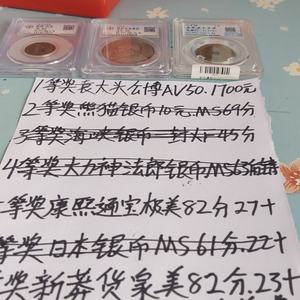 1等奖袁大头公博AU50.1700元
2等奖熊猫银币10元.MS69分
3等奖海峡银币一封大F45分
4等奖大力神法郎银币MS65
等奖康熙通宝极美82分27+
等奖日本银币MS61分.22+
奖新莽货泉美82分.23+